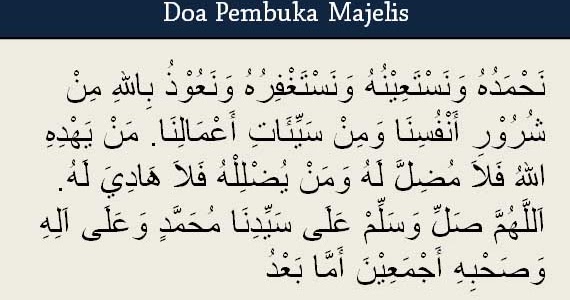 Doa Pembuka Majelis
نَحْمَدُهُ وَنَسْتَعِيْنُهُ وَنَسْتَغْفِرُهُ وَنَعُوْذُ بِاللهِ مِنْ
شُرُوْرِ أَنْفُسِنَا وَمِنْ سَيِّئَاتِ أَعْمَالِنَا. مَنْ يَهْدِهِ
اللهُ فَلاَ مُضِلَّ لَهُ وَمَنْ يُضْلِلْهُ فَلاَ هَادِيَ لَهُ.
اَللَّهُمَّ صَلِّ وَسَلِّمْ عَلَى سَيِّدِنَا مُحَمَّدٍ وَعَلَى آلِهِ
وَصَحْبِهِ أَجْمَعِيْنَ أَمَّا بَعْدُ